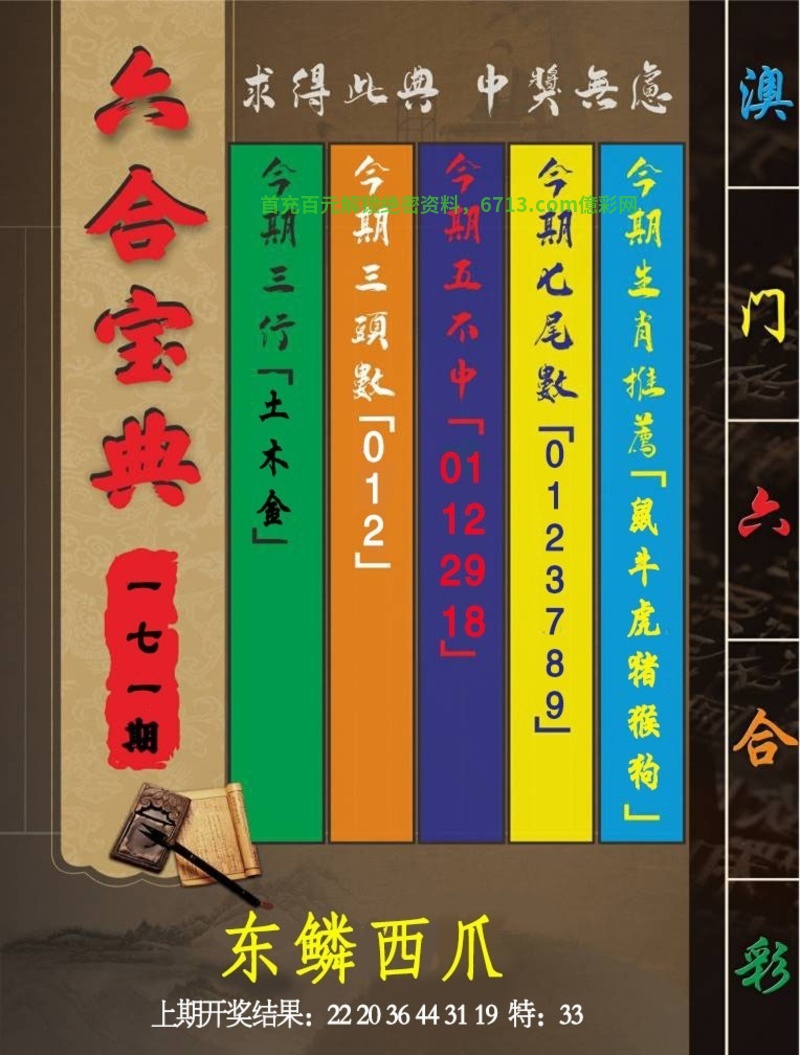 六合宝典
一七一期
求得此典 中獎無慮
今期三行「土木金」
今期三頭數「012」
今期五不中「01 12 29 18」
今期七尾數「0123789」
今期生肖推薦「鼠牛虎猪猴狗」
首充百元解锁绝密资料，6713.com億彩网
澳门六合彩
东鳞西爪
上期开奖结果：22 20 36 44 31 19 特：33